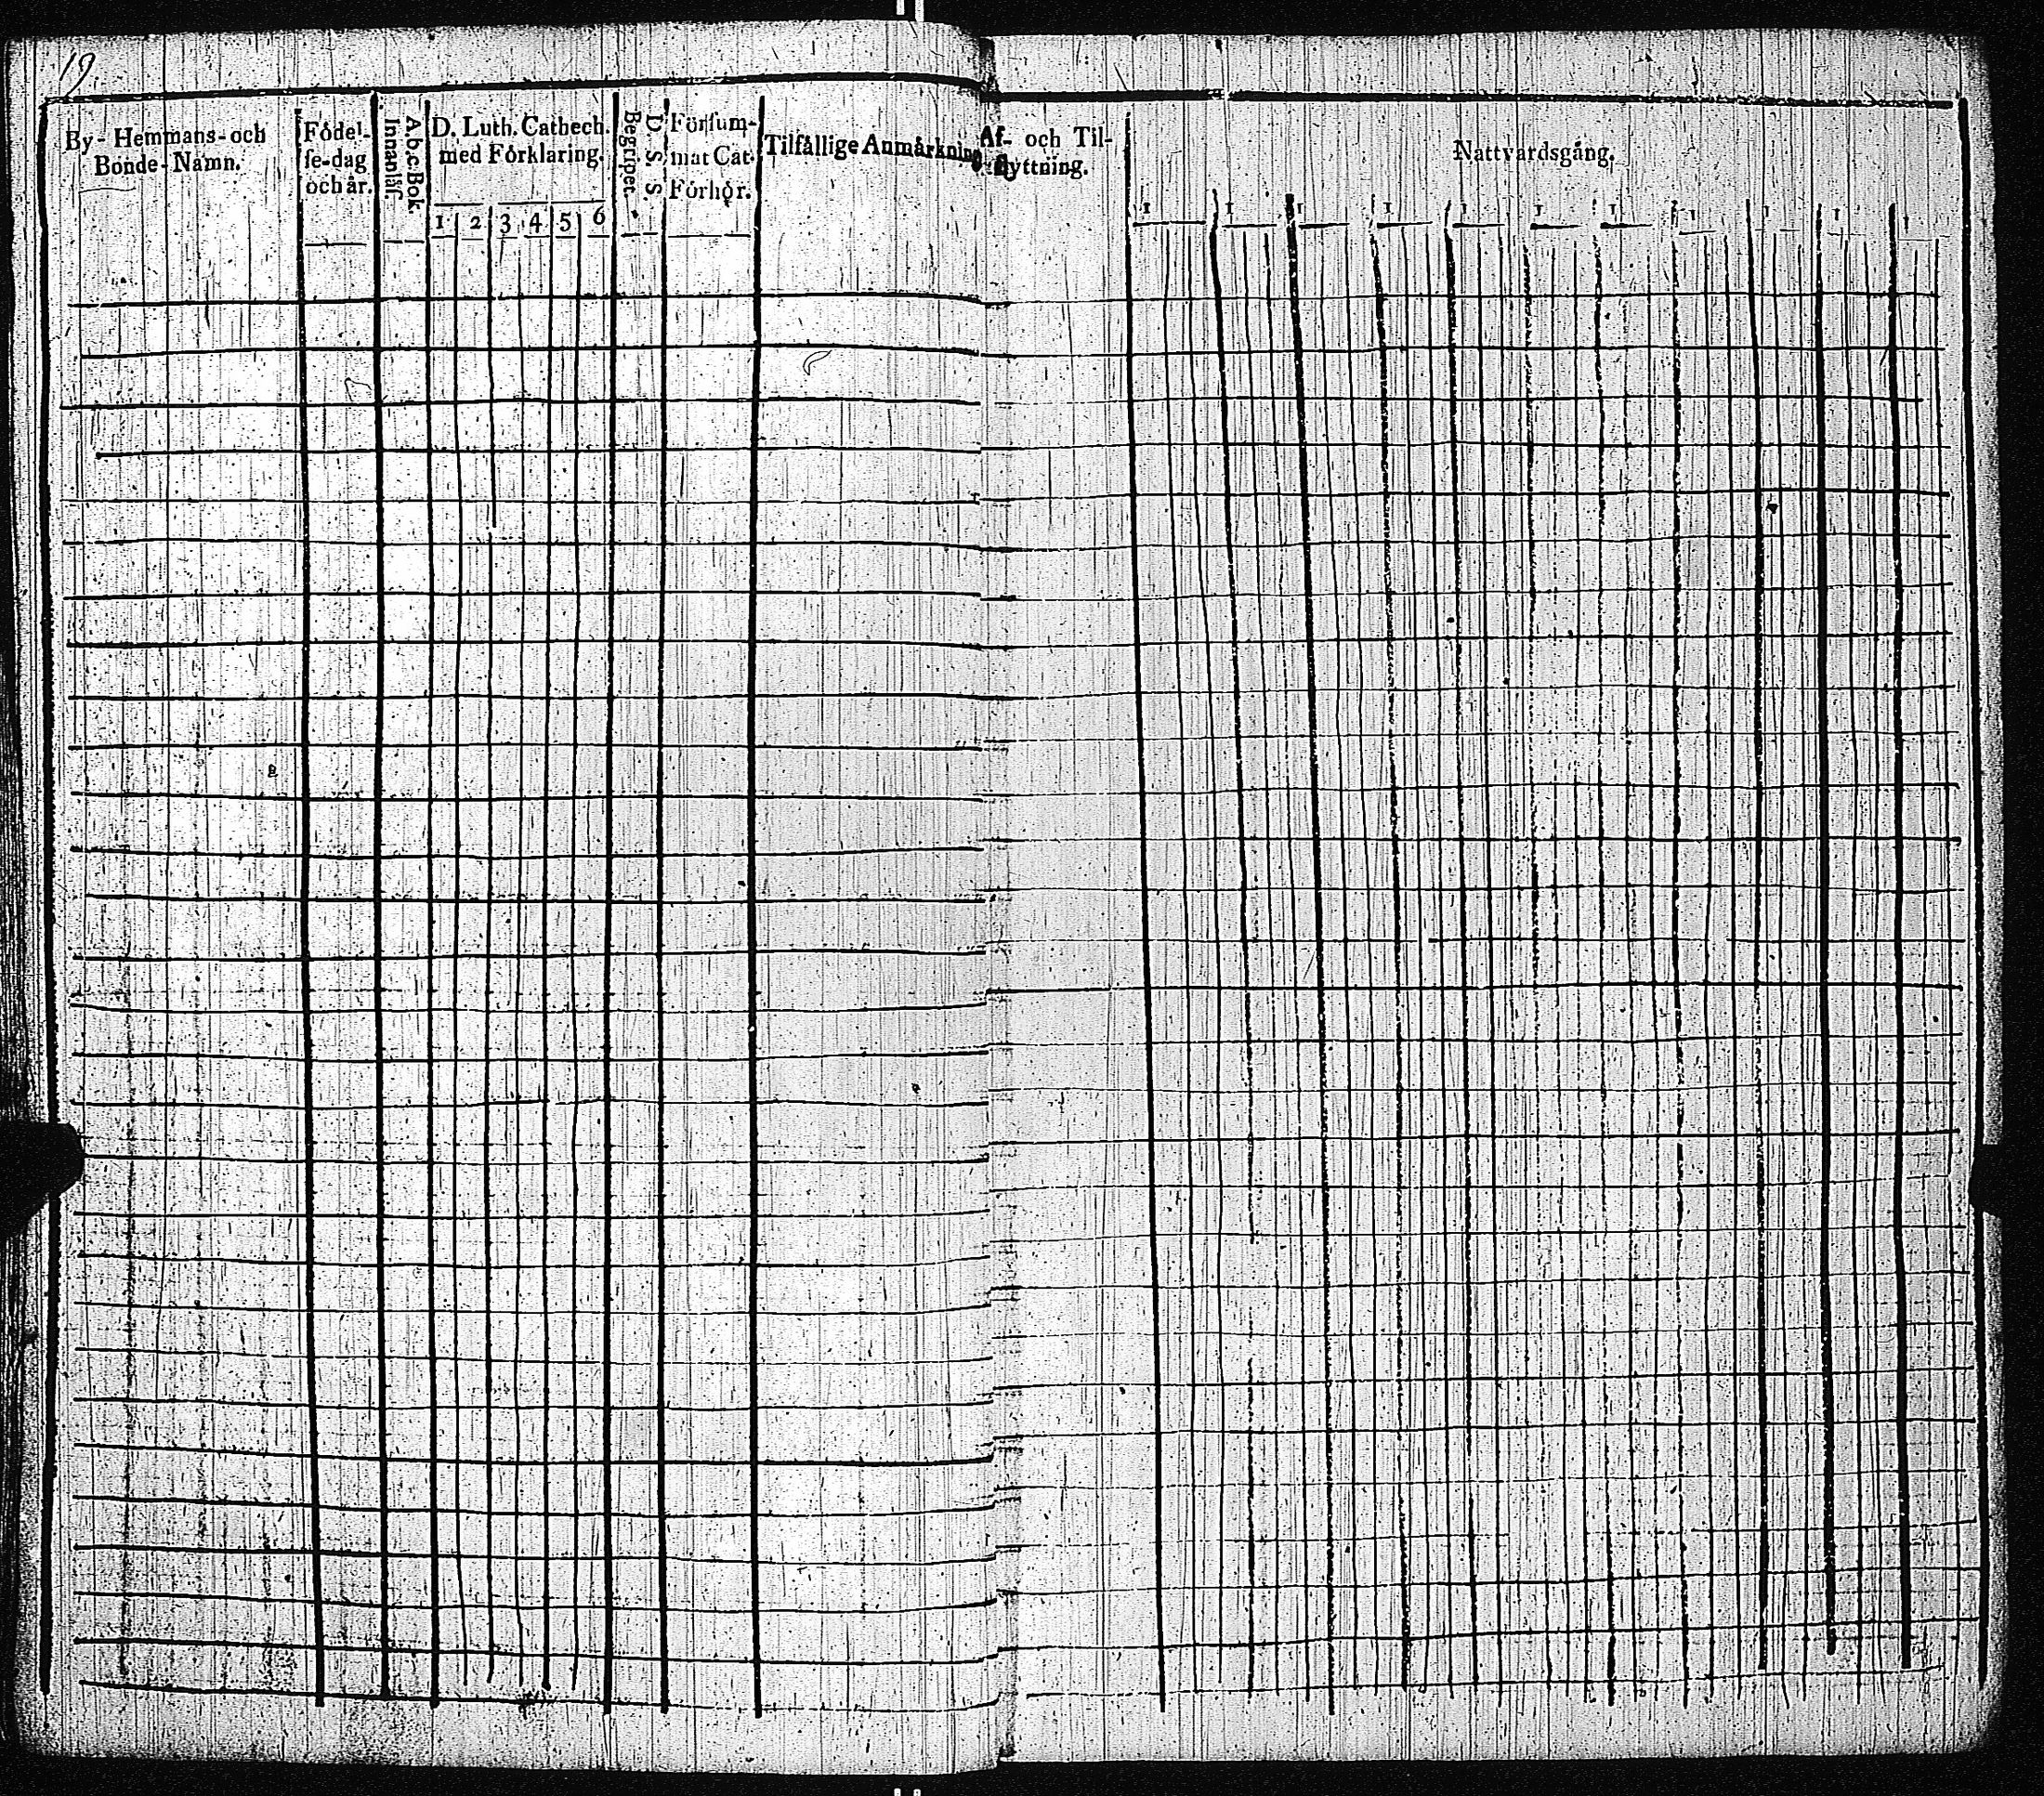 19
By- Hemmans- och
Bonde-Namn.
Födel-
se-dag
och år.
A.b.c Bok.
Innanläs.
D. Luth. Cathech.
med Förklaring.
1 2 3 4 5 6
D. S. S.
Begripet.
Försum-
mat Cat.
Förhör.
Tilfällige Anmärkning
Af- och Til-
flyttning.
Nattvardsgång.
1 1 1 1 1 1 1 1 1 1 1